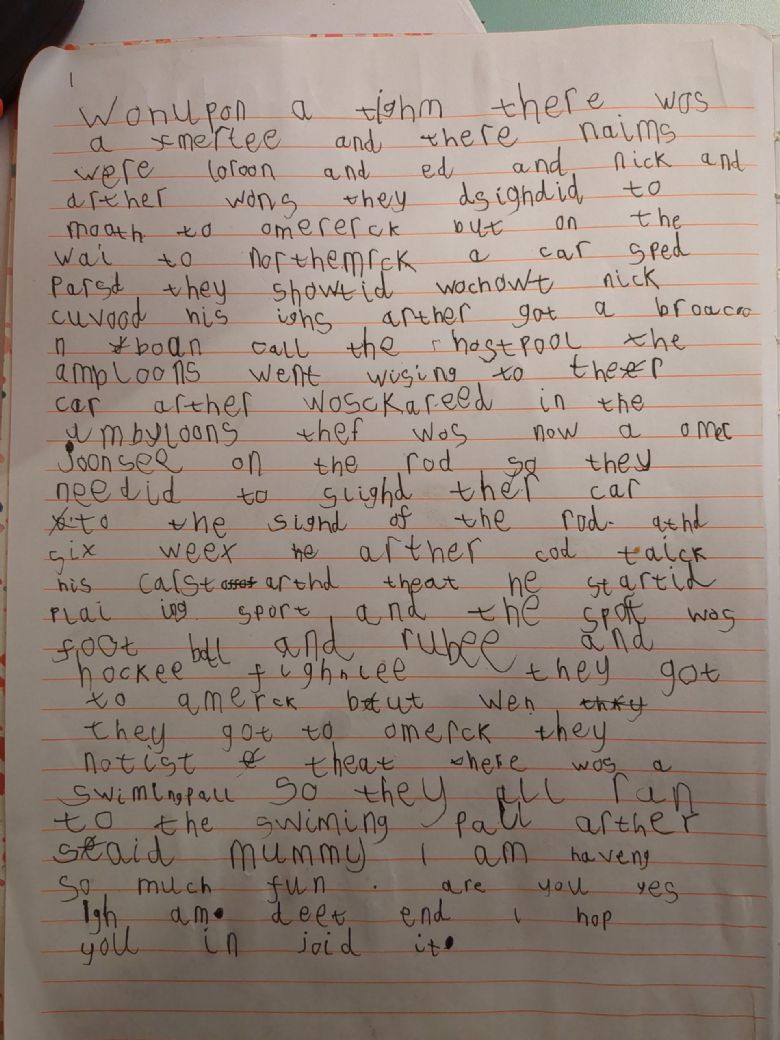 1
Wonupon a tighm there was
a xmertee and there naims
were loroon and ed and nick and
arther wons they dsighdid to
moath to omererck but on the
wai to northemrck a car sped
Parsd they showtid wochowt nick
cuvood his ighs arther got a broacoo
n boan call the hostpool the
amploons went wising to theer
car arther wosckareed in the
ambyloons thef wos now a omec
Joonsee on the rod so they
needid to slighd ther car
to the sighd of the rod. athd
six weex he arther cod taick
his carst arthd theat he startid
Plai ing sport and the sport was
foot ball and rubee and
hockee fighnlee they got
to amerck but wen thky
they got to omerck they
notist theat there was a
swimingpall So they all ran
to the swiming pall arther
staid mummy I am haveng
so much fun . are you yes
Igh am. deet end I hop
you in joid it.